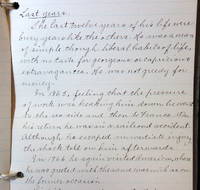 Last years.
The last twelve years of his life were
busy years like the others. He was a man
of simple though liberal habits of life,
with no taste for gorgeous or capricious
extravagances. He was not greedy for
money.
In 1865, feeling that the pressure
of work was breaking him down he went
to the sea side and then to France. On
his return he was in a railroad accident.
Although he escaped immediate injury,
the shock told on him afterwards.
In 1866 he again visited America, where
he was greeted with the same overwish as on
the former occasion.